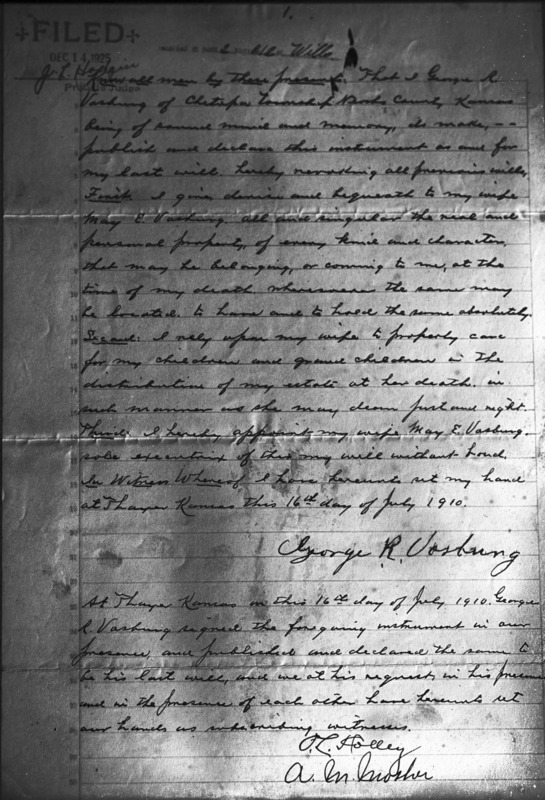 1.
FILED
DEC 14, 1925
Probate Judge
Will
Know all men by these presents: That I George R.
Vosburg of Chetopa Township Neosho County, Kansas
being of sound mind and memory, do make, --
publish and declare this instrument as and for
my last will. hereby revoking all previous wills.
First: I give, devise and bequeath to my wife
May E. Vosburg all and singular the real and
personal property, of every kind and character,
that may be belonging, or coming to me, at the
time of my death wheresoever the same may
be located. to have and to hold the same absolutely.
Second: I rely upon my wife to properly care
for, my children and grand children in the
distribution of my estate at her death. in
such manner as she may deem just and right.
Third: I hereby appoint my wife May E. Vosburg.
sole executrix of this my will without bond.
In Witness Whereof I have hereunto set my hand
at Thayer Kansas this 16th day of July 1910.
George R. Vosburg
At Thayer Kansas on this 16th day of July 1910. George
R. Vosburg signed the foregoing instrument in our
presence, and published and declared the same to
be his last will, and we at his request, in his presence
and in the presence of each other have hereunto set
our hands as subscribing witnesses.
T. L. Holley
A. M. Mosher